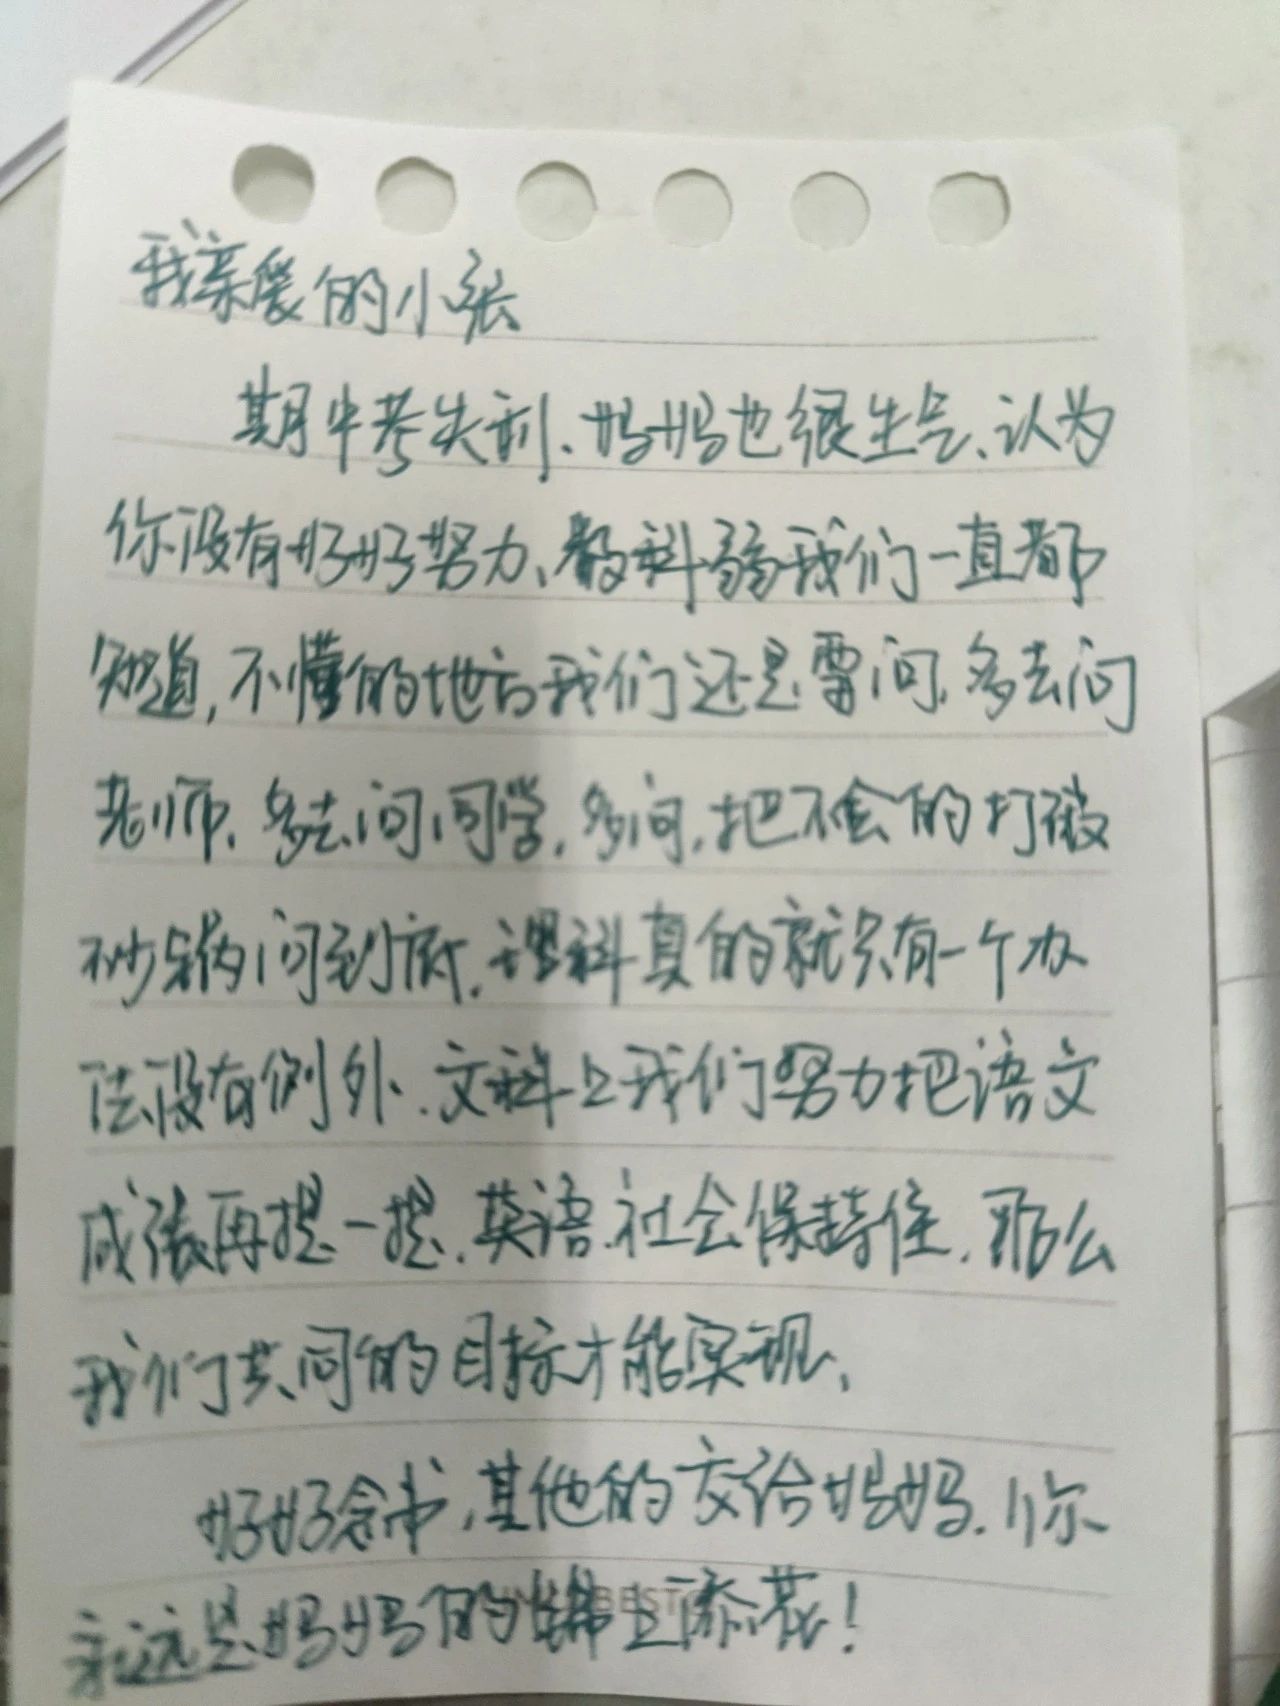 我亲爱的小张
期中考失利、妈妈也很生气、认为
你没有好好努力、数科弱我们一直都
知道,不懂的地方我们还是要问,多去问
老师、多去问同学,多问,把不会的打破
砂锅问到底,理科真的就只有一个办
法没有例外、文科上我们努力把语文
成绩再提一提,英语、社会保持住,那么
我们共同的目标才能实现、
好好念书,其他的交给妈妈.你
永远是妈妈的锦上添花!